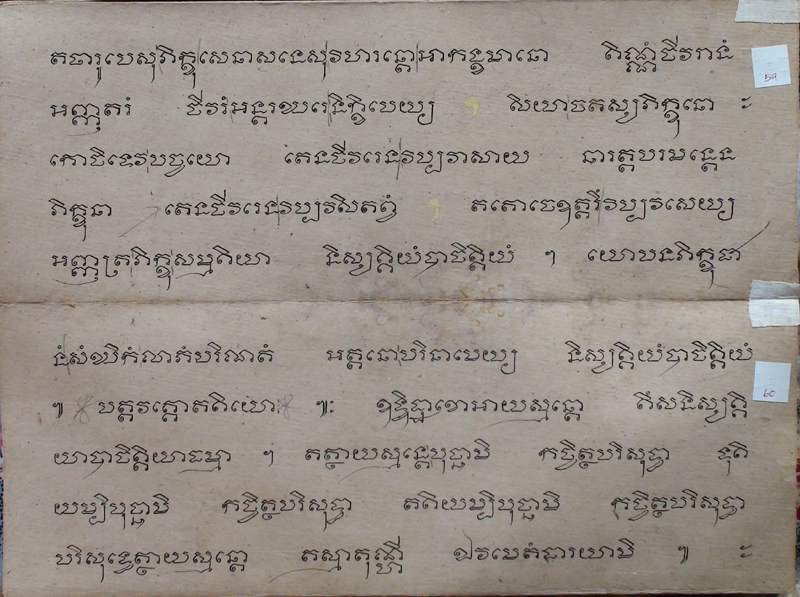 តថារូបេសុភិក្ខុសេនាសនេសុវិហរន្តោអាកង្ខមានោ តិណ្ណំចីវរានំ
អញ្ញតរំ ចីវរំអន្តរឃរេនិក្ខិបេយ្យ សិយាចតស្សភិក្ខុនោ ៈ
កោចិទេវបច្ចយោ តេនចីវរេនវិប្បវាសាយ ឆារត្តបរមន្តេន
ភិក្ខុនា តេនចីវរេនវិប្បវសិតព្វំ តតោចេឧត្តរឹវិប្បវសេយ្យ
អញ្ញត្រភិក្ខុសម្មតិយា និស្សគ្គិយំបាចិត្តិយំ ។ យោបនភិក្ខុជា
នំសំឃិកំលាភំបរិណតំ អត្តនោបរិណាមេយ្យ និស្សគ្គិយំបាចិត្តិយំ
៕ បត្តវគ្គោតតិយោ ៕ៈ ឧទ្ទិដ្ឋាខោអាយស្មន្តោ តឹសនិស្សគ្គិ
យាបាចិត្តិយាធម្មា ។ តត្ថាយស្មន្តេបុច្ឆាមិ កច្ចិត្ថបរិសុទ្ធា ទុតិ
យម្បិបុច្ឆាមិ កច្ចិត្ថបរិសុទ្ធា តតិយម្បិបុច្ឆាមិ កច្ចិត្ថបរិសុទ្ធា
បរិសុទ្ធេត្ថាយស្មន្តោ តស្មាតុណ្ហី ឯវមេតំធារយាមិ ៕ ៈ
59
60